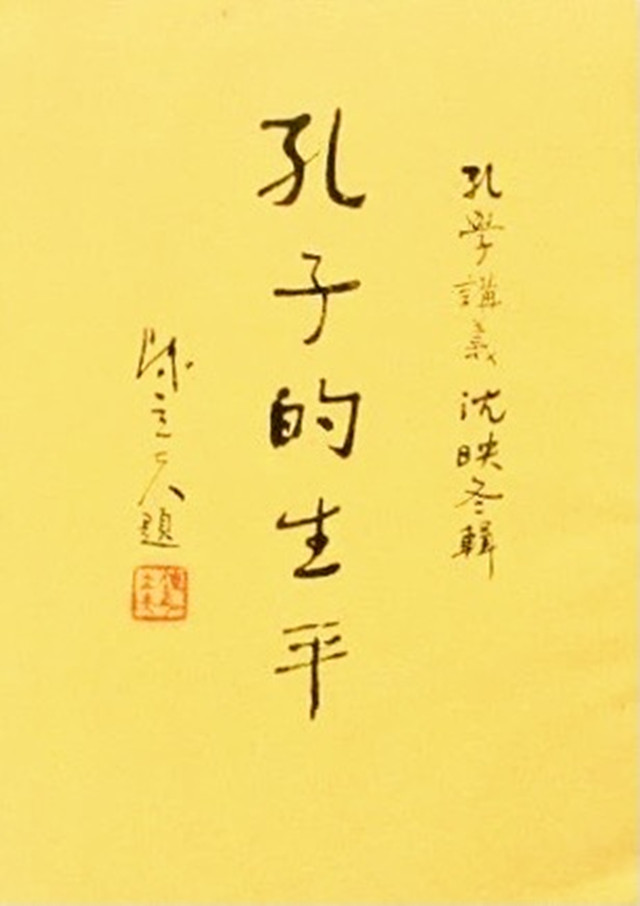 孔學講義 沈映冬輯
孔子的生平
陳立夫題